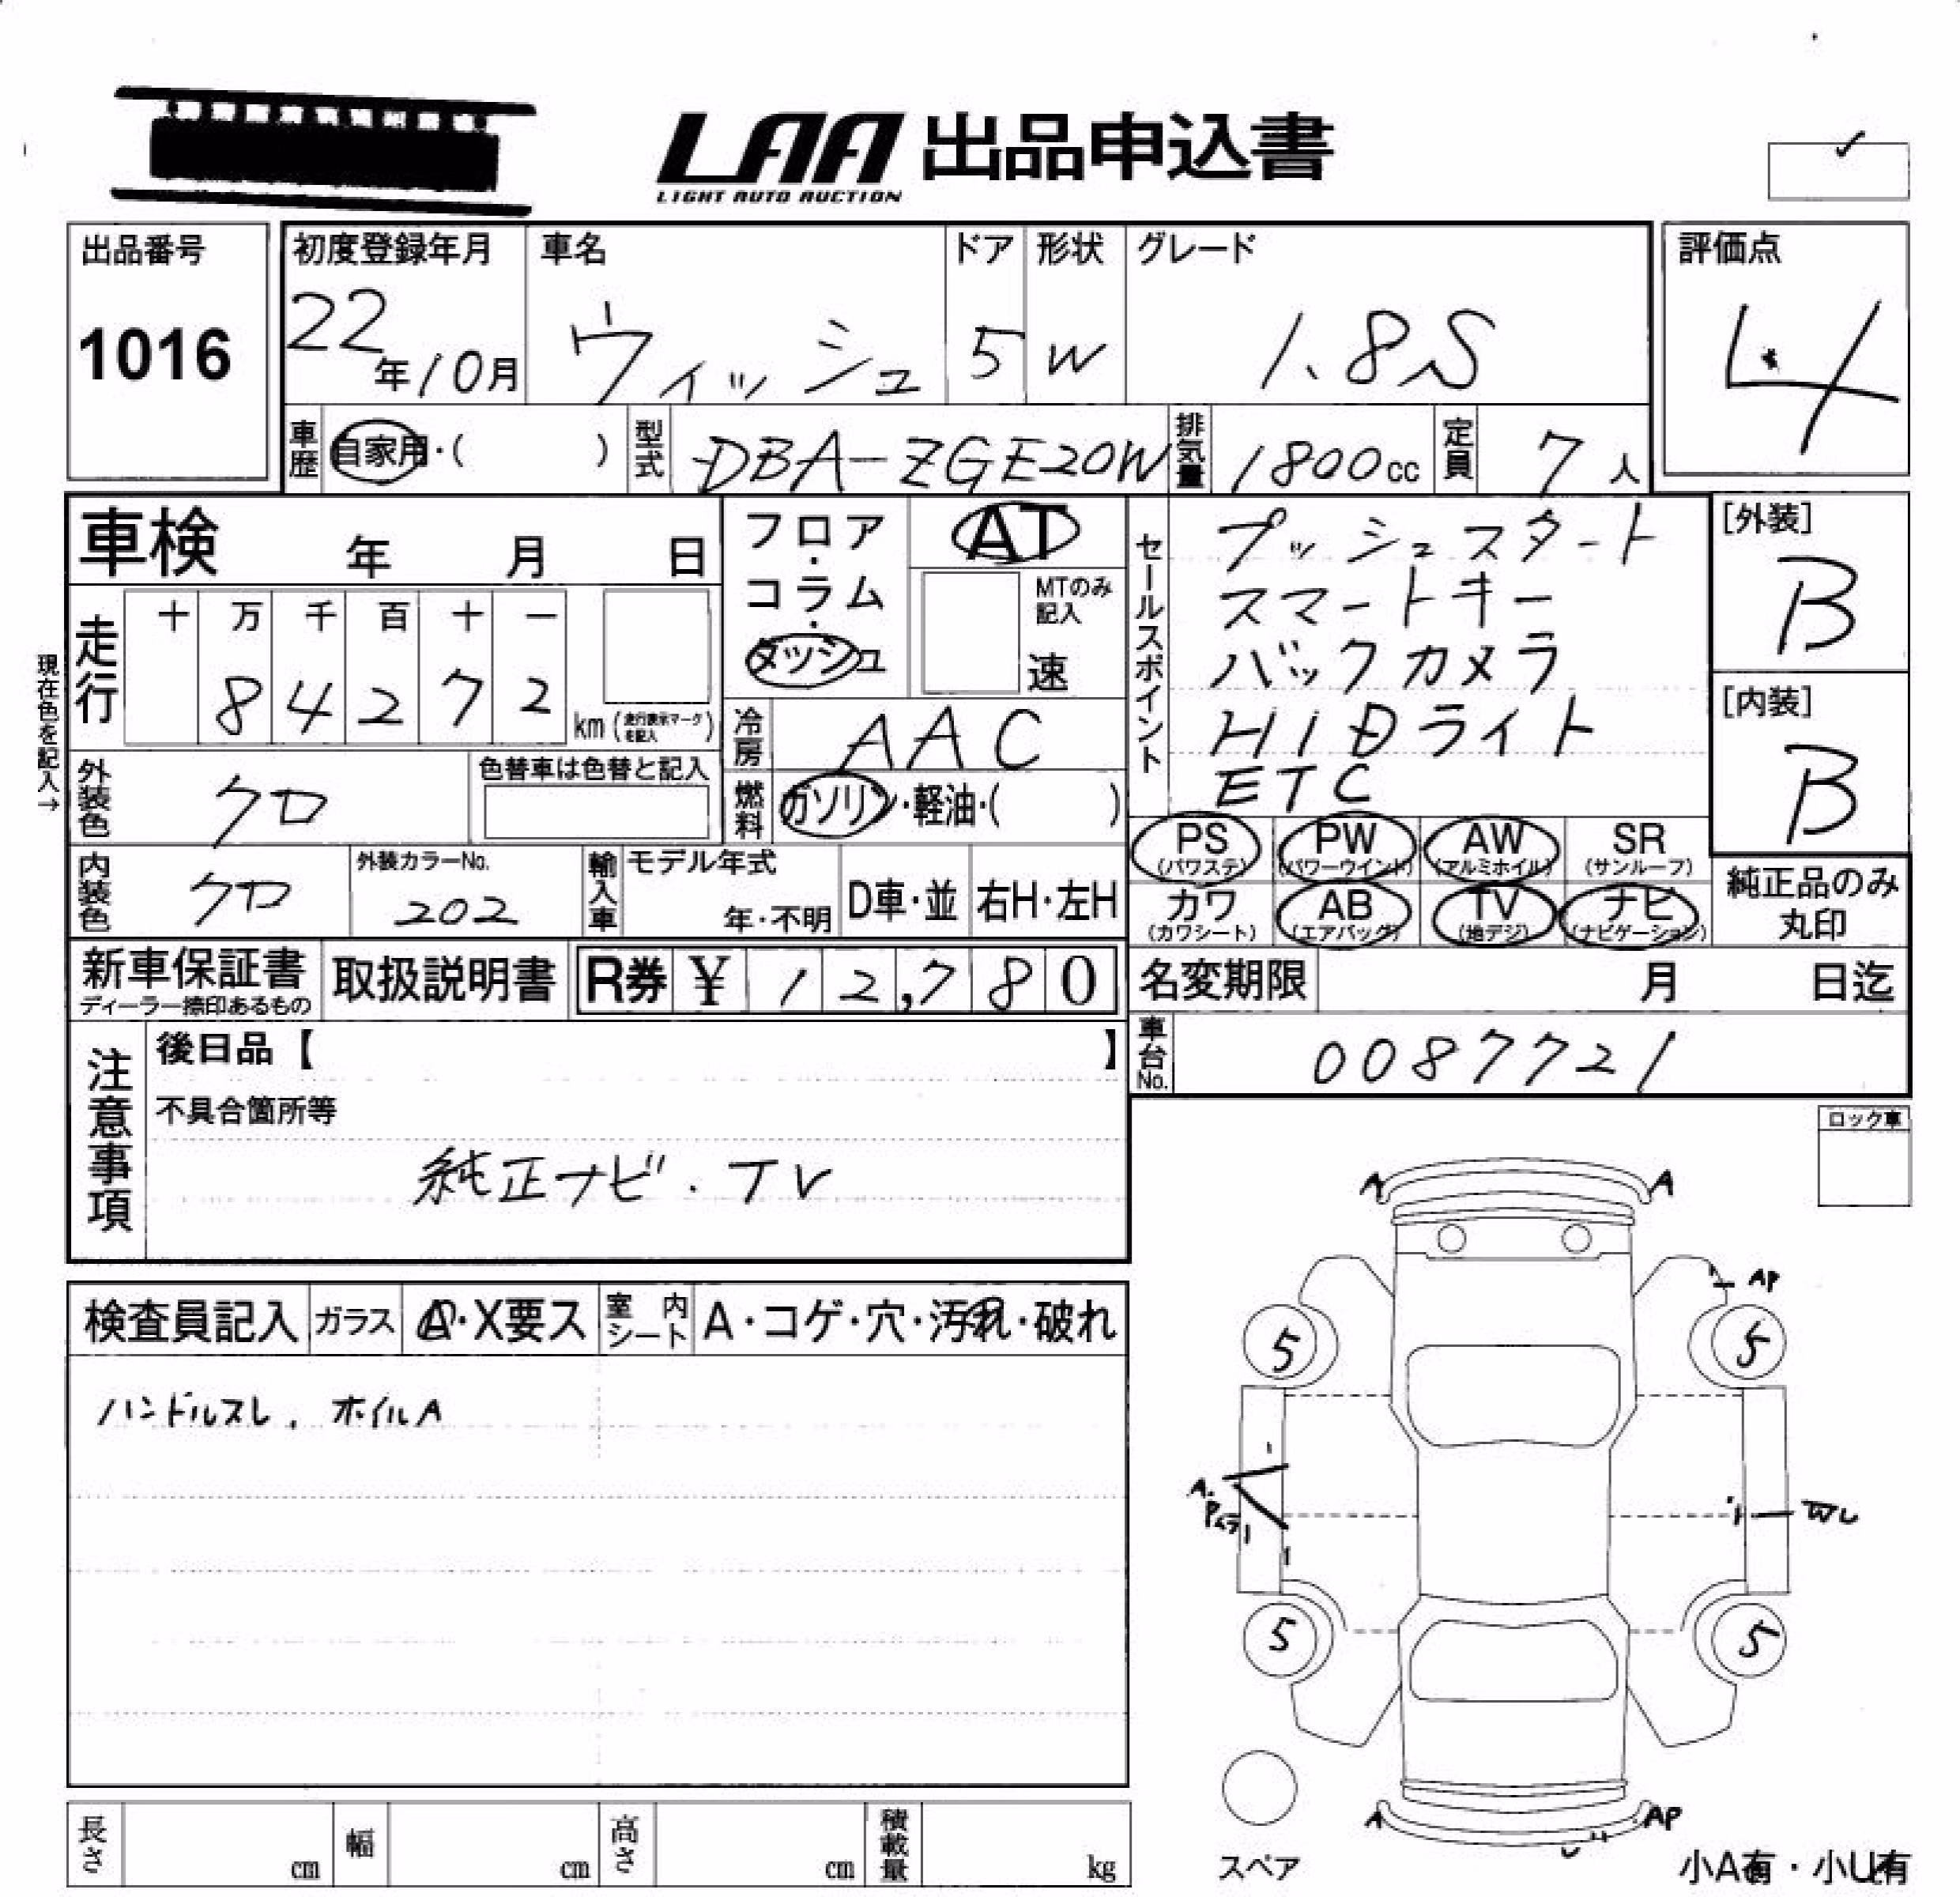 LAA 出品申込書
LIGHT AUTO AUCTION
出品番号
1016
初度登録年月
22年10月
車名
ウィッシュ
ドア
5
形状
W
グレード
1.8S
評価点
4
車歴 自家用・( )
型式 DBA-ZGE20W
排気量 1800cc
定員 7人
車検 年 月 日
フロア・コラム・ダッシュ
AT
MTのみ記入
速
セールスポイント
プッシュスタート
スマートキー
バックカメラ
HIDライト
ETC
[外装]
B
[内装]
B
現在色を記入→
走行
十 万 千 百 十 一
8 4 2 7 2
km (走行表示マークを記入)
冷房 AAC
外装色 クロ
色替車は色替と記入
燃料 ガソリン・軽油・( )
内装色 クロ
外装カラーNo.
202
輸入車
モデル年式
年・不明
D車・並
右H・左H
PS (パワステ)
PW (パワーウインド)
AW (アルミホイル)
SR (サンルーフ)
カワ (カワシート)
AB (エアバッグ)
TV (地デジ)
ナビ (ナビゲーション)
純正品のみ
丸印
新車保証書
ディーラー捺印あるもの
取扱説明書
R券 ¥ 12,780
名変期限 月 日迄
車台No. 0087721
注意事項
後日品【 】
不具合箇所等
純正ナビ.TV
ロック車
検査員記入
ガラス A・X要ス
室内シート A・コゲ・穴・汚れ・破れ
ハンドルスレ、ホイルA
A A
AP
5 5
A.
P
5 5
A AP
スペア
小A有・小U有
長さ cm
幅 cm
高さ cm
積載量 kg